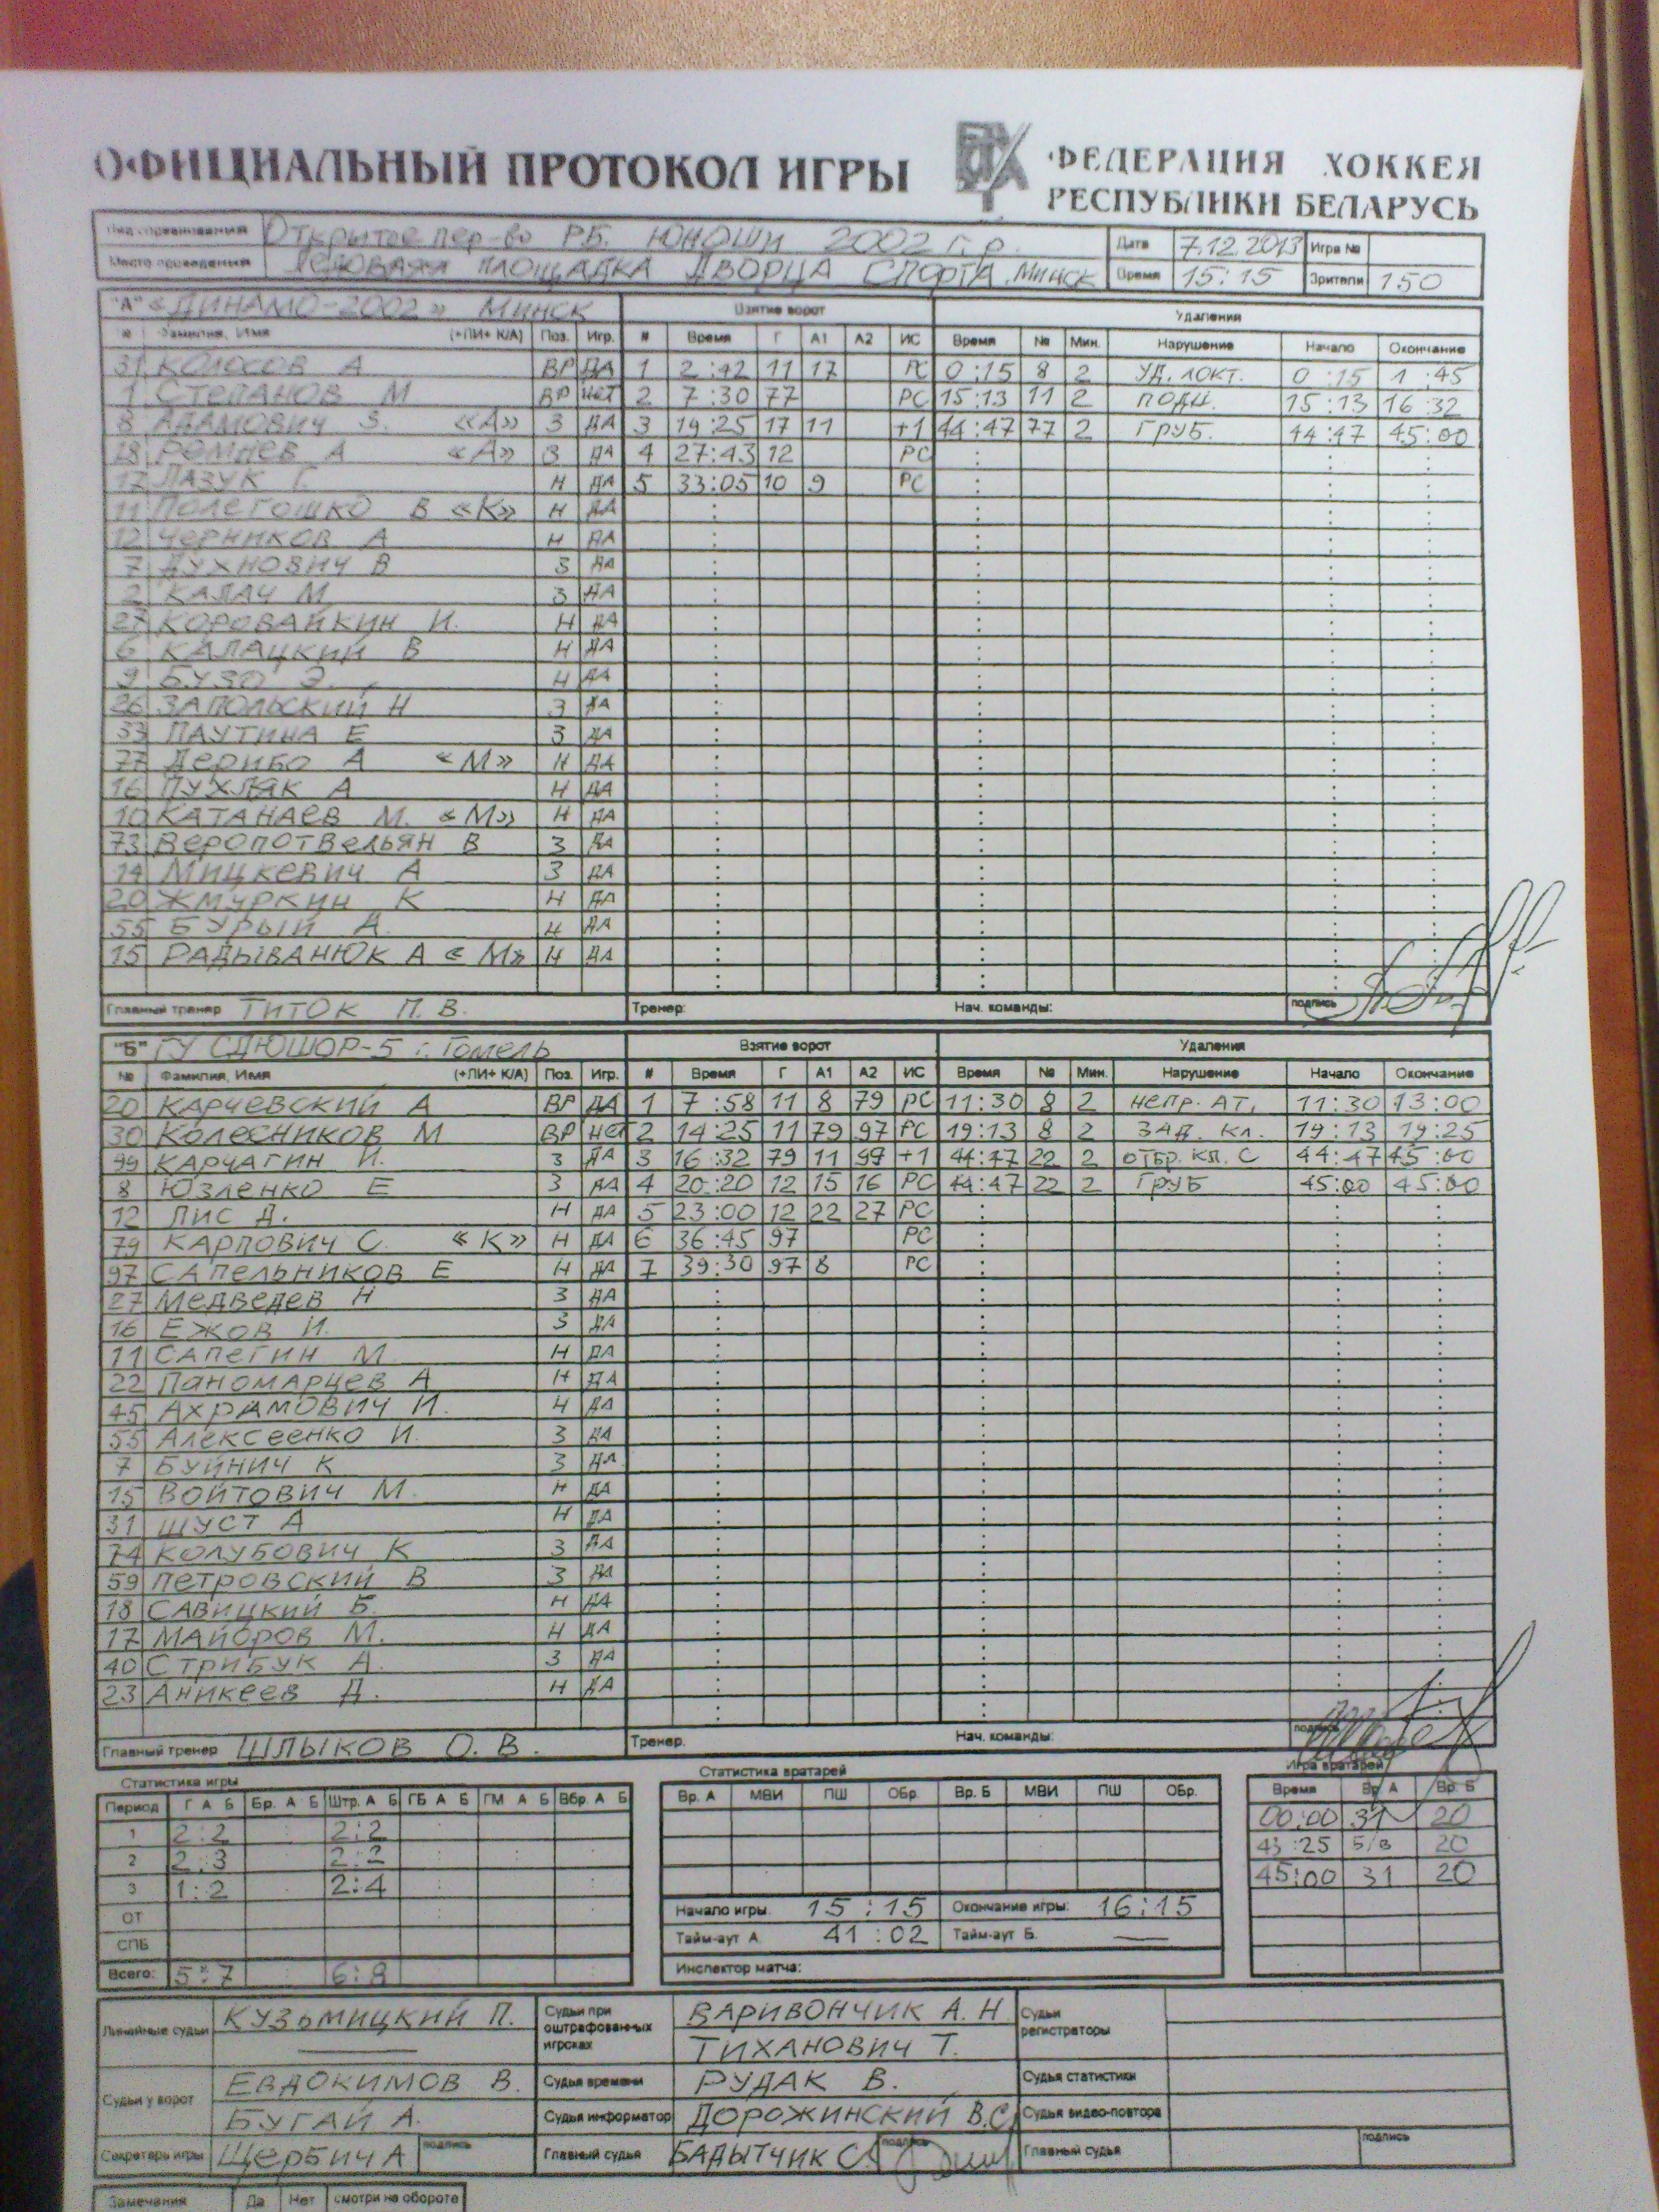 ОФИЦИАЛЬНЫЙ ПРОТОКОЛ ИГРЫ
ФЕДЕРАЦИЯ ХОККЕЯ
РЕСПУБЛИКИ БЕЛАРУСЬ
Вид соревнования Открытое пер-во РБ. ЮНОШИ 2002 г.р. Дата 7.12.2013 Игра №
Место проведения ЛЕДОВАЯ ПЛОЩАДКА ДВОРЦА СПОРТА МИНСК Время 15:15 Зрители 150
"А" «ДИНАМО-2002» МИНСК Взятие ворот Удаления
№ Фамилия, Имя (+ЛИ+ К/А) Поз. Игр. # Время Г А1 А2 ИС Время № Мин. Нарушение Начало Окончание
31 КОЛОСОВ А ВР ДА 1 2:42 11 17 РС 0:15 8 2 УД. ЛОКТ. 0:15 1:45
1 СТЕПАНОВ М ВР НЕТ 2 7:30 77 РС 15:13 11 2 ПОДН. 15:13 16:32
8 АДАМОВИЧ З. «А» З ДА 3 19:25 17 11 +1 44:47 77 2 ГРУБ. 44:47 45:00
28 РЕМНЕВ А «А» З ДА 4 27:43 12 РС
17 ЛАЗУК Г. Н ДА 5 33:05 10 9 РС
11 ПОЛЕГОШКО В «К» Н ДА
12 ЧЕРНИКОВ А Н ДА
7 ДУХНОВИЧ В З ДА
2 КАЛАЧ М З ДА
27 КОРОВАЙКИН И. Н ДА
6 КАЛАЦКИЙ В Н ДА
9 БУЗО Э. Н ДА
26 ЗАПОЛЬСКИЙ Н З ДА
33 ПАУТИНА Е З ДА
77 ДЕРИБО А «М» Н ДА
16 ПУХЛЯК А Н ДА
10 КАТАНАЕВ М. «М» Н ДА
73 ВЕРОПОТВЕЛЬЯН В З ДА
14 МИЦКЕВИЧ А З ДА
20 ЖМУРКИН К Н ДА
55 БУРЫЙ А. Н ДА
15 РАДЫВАНЮК А «М» Н ДА
Главный тренер ТИТОК П. В. Тренер: Нач. команды: подпись
"Б" ГУ СДЮШОР-5 г. Гомель Взятие ворот Удаления
№ Фамилия, Имя (+ЛИ+ К/А) Поз. Игр. # Время Г А1 А2 ИС Время № Мин. Нарушение Начало Окончание
20 КАРЧЕВСКИЙ А ВР ДА 1 7:58 11 8 79 РС 11:30 8 2 НЕПР. АТ. 11:30 13:00
30 КОЛЕСНИКОВ М ВР НЕТ 2 14:25 11 79 97 РС 19:13 8 2 ЗАД. КЛ. 19:13 19:25
99 КАРЧАГИН И. З ДА 3 16:32 79 11 99 +1 44:47 22 2 ОТБР. КЛ. С 44:47 45:00
8 ЮЗЛЕНКО Е З ДА 4 20:20 12 15 16 РС 44:47 22 2 ГРУБ 45:00 45:00
12 ЛИС Д. Н ДА 5 23:00 12 22 27 РС
79 КАРПОВИЧ С. «К» Н ДА 6 36:45 97 РС
97 САПЕЛЬНИКОВ Е Н ДА 7 39:30 97 8 РС
27 МЕДВЕДЕВ Н З ДА
16 ЕЖОВ И. З ДА
11 САПЕГИН М Н ДА
22 ПАНОМАРЦЕВ А Н ДА
45 АХРАМОВИЧ И. Н ДА
55 АЛЕКСЕЕНКО И. З ДА
7 БУЙНИЧ К З ДА
15 ВОЙТОВИЧ М. Н ДА
31 ШУСТ А Н ДА
74 КОЛУБОВИЧ К З ДА
59 ПЕТРОВСКИЙ В З ДА
18 САВИЦКИЙ Б. Н ДА
17 МАЙОРОВ М. Н ДА
40 СТРИБУК А. З ДА
23 АНИКЕЕВ Д. Н ДА
Главный тренер ШЛЫКОВ О. В. Тренер. Нач. команды: подпись
Статистика игры Статистика вратарей Игра вратарей
Период Г А Б Бр. А Б Штр. А Б ГБ А Б ГМ А Б Вбр. А Б Вр. А МВИ ПШ ОБр. Вр. Б МВИ ПШ ОБр. Время Вр. А Вр. Б
1 2:2 2:2 00:00 31 20
2 2:3 2:2 43:25 Б/В 20
3 1:2 2:4 45:00 31 20
ОТ Начало игры 15:15 Окончание игры: 16:15
СПБ Тайм-аут А. 41:02 Тайм-аут Б. —
Всего: 5:7 6:8 Инспектор матча:
Линейные судьи КУЗЬМИЦКИЙ П. Судьи при оштрафованных игроках ВАРИВОНЧИК А. Н Судьи регистраторы
ТИХАНОВИЧ Т.
Судьи у ворот ЕВДОКИМОВ В. Судья времени РУДАК В. Судья статистики
БУГАЙ А. Судья информатор ДОРОЖИНСКИЙ В.С. Судья видео-повтора
Секретарь игры ЩЕРБИЧ А подпись Главный судья БАДЫТЧИК С. подпись Главный судья подпись
Замечания Да Нет смотри на обороте